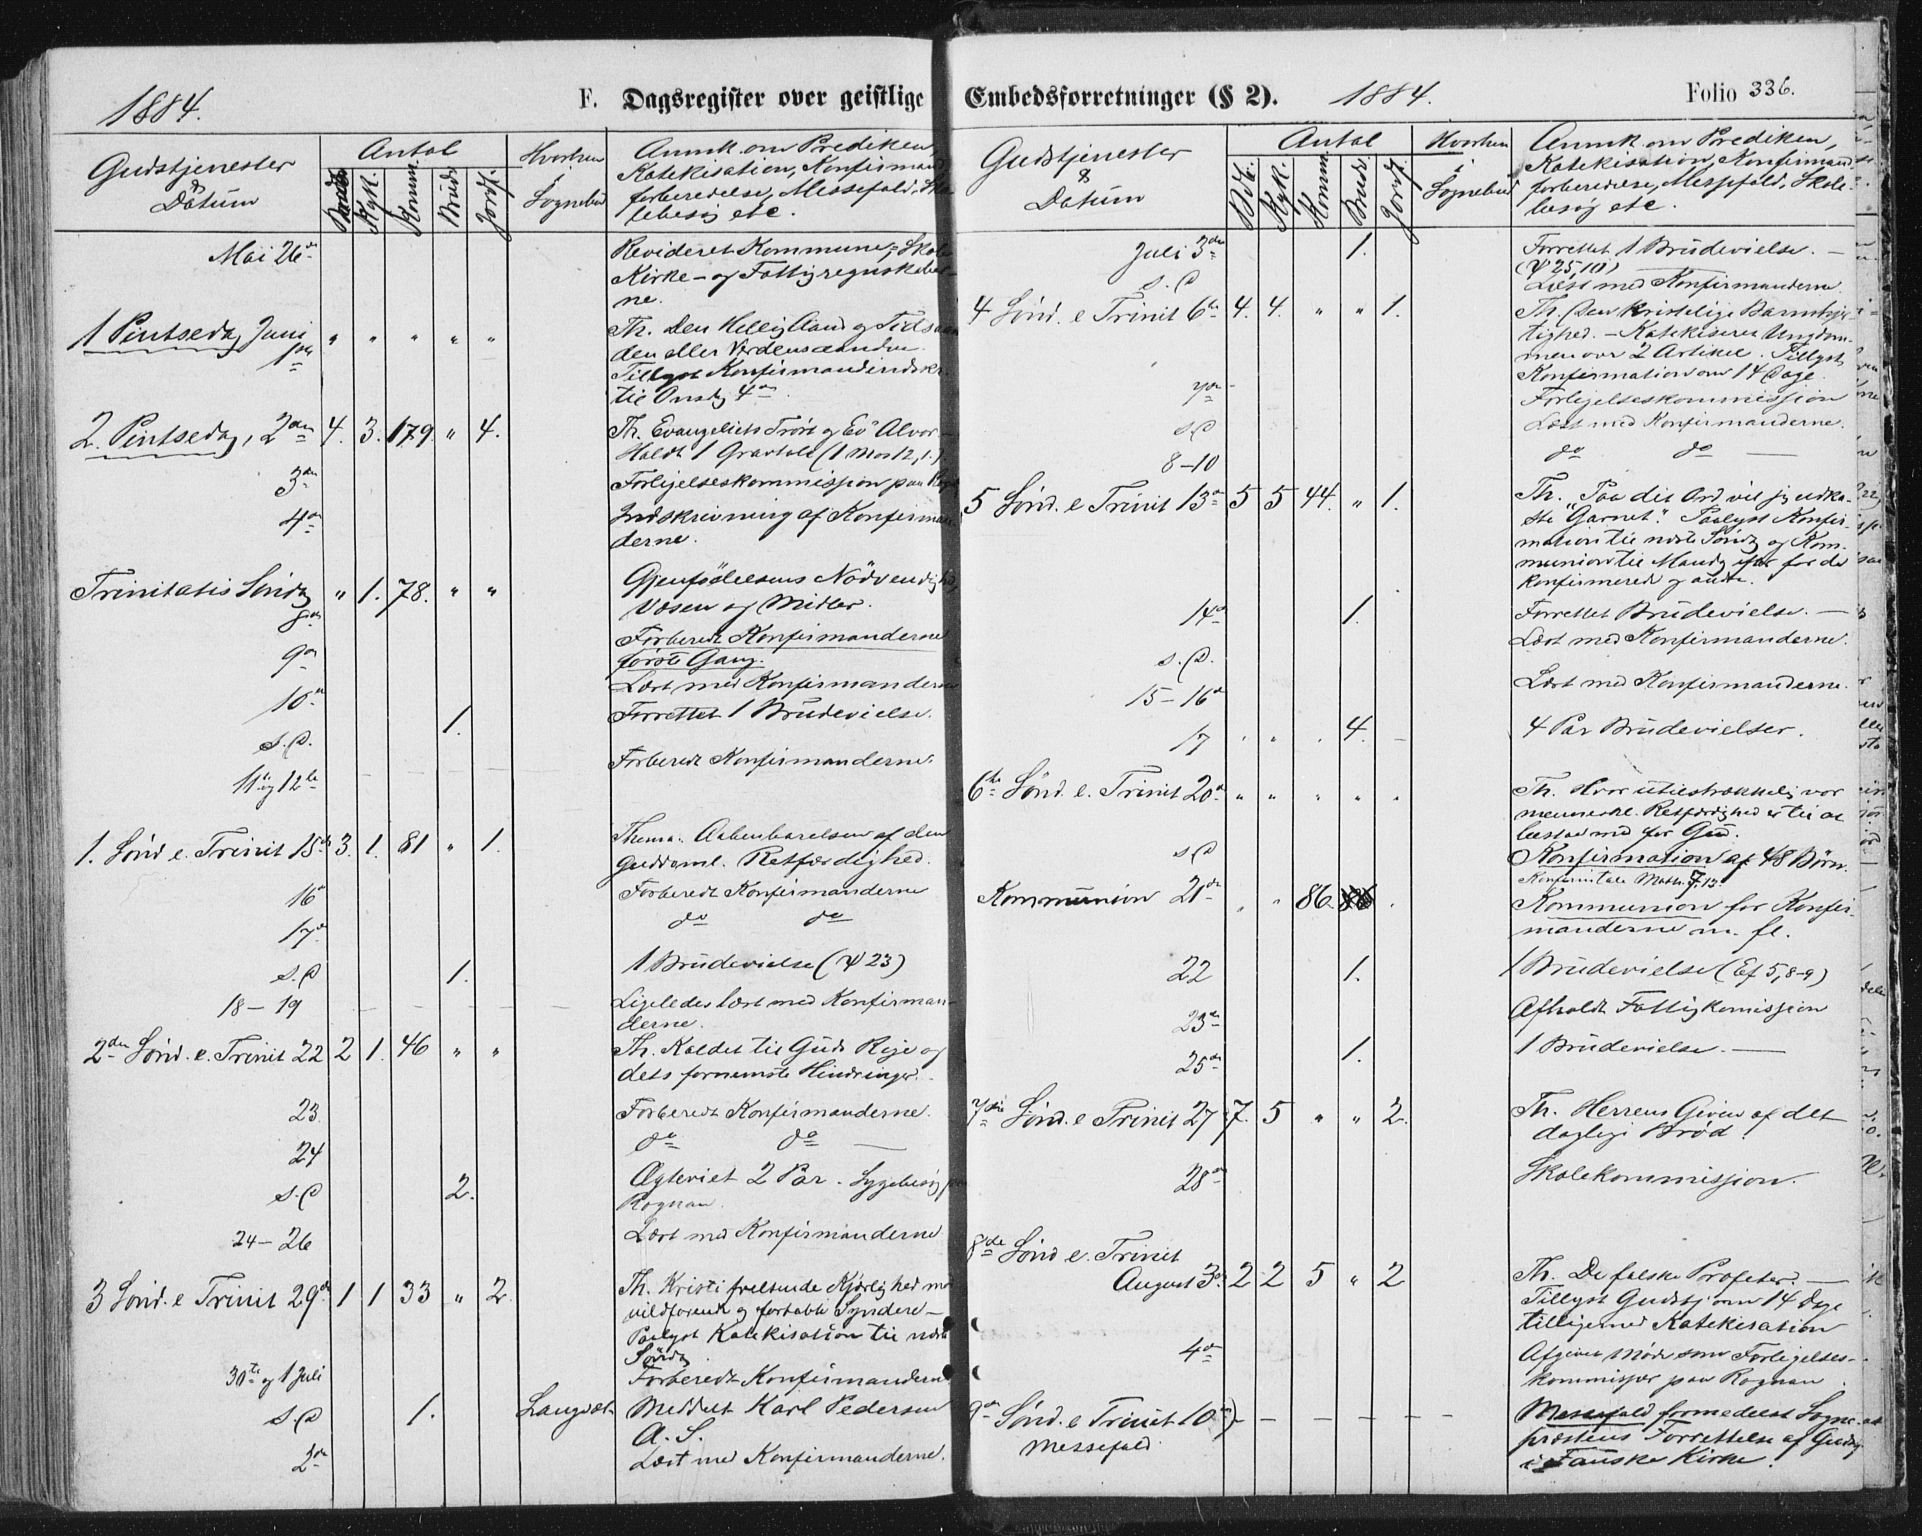 1884.
F. Dagsregister over geistlige
Gudstjenester
&
Datum
Antal
Kyk.
Komm.
Brud.
Jordf.
Hvorhen
i
Sognebud
Anmk. om Prediken,
Katekisation, Konfirmand
forberedelse, Messefald, Sko
lebesøg etc.
Mai 26de
Revideret Kommune, Skole
Kirke- og Fattigregnskaber-
ne.
1 Pintsedag Juni
1ste
" " " " "
Th. Den Hellig Aand og Tidsaan
den eller Verdensaanden.
Tillyst Konfirmandindskr.
til Onsdg 4de
2. Pintsedag, 2den 4. 3. 179. " 4.
Th. Evangeliets Trøst og Ev's Alvor.
Holdt 1 Gravtale (1 Mos 12,1.)
3die
Forligelseskommission paa Rogn
4de
Indskrivning af Konfirman
derne.
Trinitatis Søndg " 1. 78. " "
8de
Gjenfødelsens Nødvendighed,
Væsen og Midler.
9de
Forberedt Konfirmanderne
første Gang.
10de
Læst med Konfirmanderne
s. D. 1.
Forrettet 1 Brudevielse.
11te og 12te
Forberedt Konfirmanderne.
1. Sønd e. Trinit 15de 3. 1. 81 " 1.
Thema: Aabenbarelsen af den
guddoml. Retfærdighed.
16de
Forberedt Konfirmanderne
17de
do do
s. D 1.
1 Brudevielse (ψ 23)
18 – 19
Ligeledes læst med Konfirman-
derne.
2den Sønd. e. Trinit 22 2 1. 46 " "
Th. Kaldet til Guds Rige og
dets fornemste Hindringer.
23
Forberedt Konfirmanderne.
24
do do
s. D 2.
Ægteviet 2 Par. Sygebesøg paa
Rognan.
24 – 26
Læst med Konfirmanderne
3 Sønd. e Trinit 29de 1 1 33 " 2.
Th. Kristi frelsende Kjærlighed mod
vildfarende og fortabte Syndere –
Paalyst Katekisation til næste
Søndg
30te og 1 Juli
Forberedt Konfirmanderne
s. D 1. Langvat
Meddelt Karl Pedersen
A. S.
2den
Læst med Konfirmanderne.
Embedsforretninger (§ 2). 1884. Folio 336.
Gudstjenester
&
Datum
Antal
Kyk.
Komm.
Brud.
Jordf.
Hvorhen
i
Sognebud
Anmk. om Prediken,
Katekisation, Konfirmand
forberedelse, Messefald, Skole-
besøg etc.
Juli 3die 1.
Forrettet 1 Brudevielse. –
(ψ 25,10)
s. D
Læst med Konfirmanderne
4 Sønd. e Trinit 6te 4. 4. " " 1.
Th. Den kristelige Barmhjer-
tighed. – Katekiseret Ungdom-
men over 2 Artikel. Tillyst
Konfirmation om 14 Dage.
7de
Forligelseskommission
s. D
Læst med Konfirmanderne.
8 – 10
do do
5 Sønd. e Trinit 13de 5 5 44. " 1.
Th. "Paa dit Ord vil jeg udka-
ste "Garnet". Paalyst Konfir-
mation til næste Søndg og Kom-
munion til Mandg efter for de
konfirmered og andre.
14de 1.
Forrettet Brudevielse. –
s. D.
Læst med Konfirmanderne.
15 – 16de
Læst med Konfirmanderne.
17 4.
4 Par Brudevielser.
6te Sønd. e. Trinit 20de " " " " "
Th. Hvor utilstrækkelig vor
menneskel. Retfærdighed er til at
bestaa med for Gud.
s. D
Konfirmation af 48 Børn.
Konfirmtale Math. 7.13
Kommunion 21de " " 86.
Kommunion for Konfir-
manderne m. fl.
22 1.
1 Brudevielse (Ef 5, 8-9)
23de
Afholdt Fattigkomission
25de 1.
1 Brudevielse. –
7die Sønd. e Trinit 27 7. 5 " " 2.
Th. Herrens Given af det
daglige Brød.
28de
Skolekommission.
8de Sønd e. Trinit
August 3die 2 2 5 " 2
Th. De falske Profeter. –
Tillyst Gudstj om 14 Dage
tilligemed Katekisation
4de
Afgivet Møde som Forligelses-
kommissær paa Rognan
9de Sønd. e Trinit 10de) – – – – – –
Messefald
Messefald formedelst Sogne-
præstens Forrettelse af Gudstj
i Fauske Kirke.